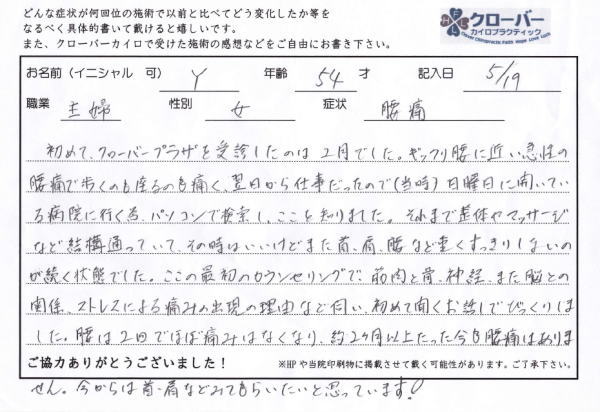 どんな症状が何回位の施術で以前と比べてどう変化したか等を
なるべく具体的書いて戴けると嬉しいです。
また、クローバーカイロで受けた施術の感想などをご自由にお書き下さい。
クローバー
カイロプラクティック
Clover Chiropractic Faith Hope Love Luck
お名前(イニシャル 可) Y 年齢 54 才 記入日 5/19
職業 主婦 性別 女 症状 腰痛
初めて、クローバープラザを受診したのは2月でした。ギックリ腰に近い急性の
腰痛で歩くのも座るのも痛く、翌日から仕事だったので(当時)日曜日に開いてい
る病院に行く為、パソコンで検索し、ここを知りました。それまで整体やマッサージ
など結構通っていて、その時はいいけどまた首、肩、腰など重くすっきりしないの
が続く状態でした。ここの最初のカウンセリングで、筋肉と骨、神経、また脳との
関係、ストレスによる痛みの出現の理由など伺い、初めて聞くお話しでびっくりしま
した。腰は2回でほぼ痛みはなくなり、約2ヶ月以上たった今も腰痛はありま
ご協力ありがとうございました!
※HPや当院印刷物に掲載させて戴く可能性があります。ご了承下さい。
せん。今からは首・肩などみてもらいたいと思っています!